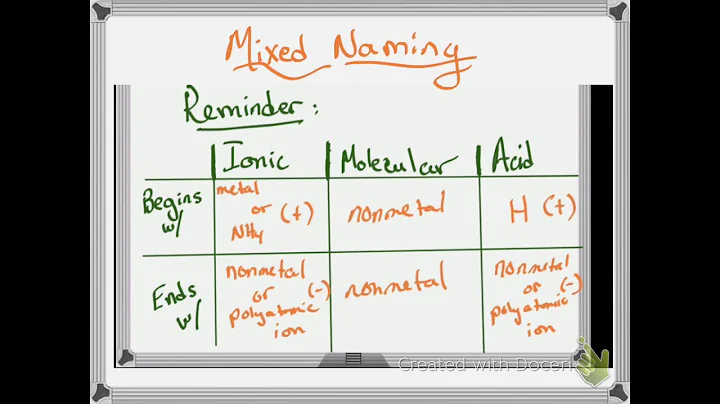 Mixed Naming
Reminder:
Ionic Molecular Acid
Begins w/
metal or NH4 (+)
nonmetal
H (+)
Ends w/
nonmetal or polyatomic ion (-)
nonmetal
nonmetal or polyatomic ion (-)
Created with Doceri